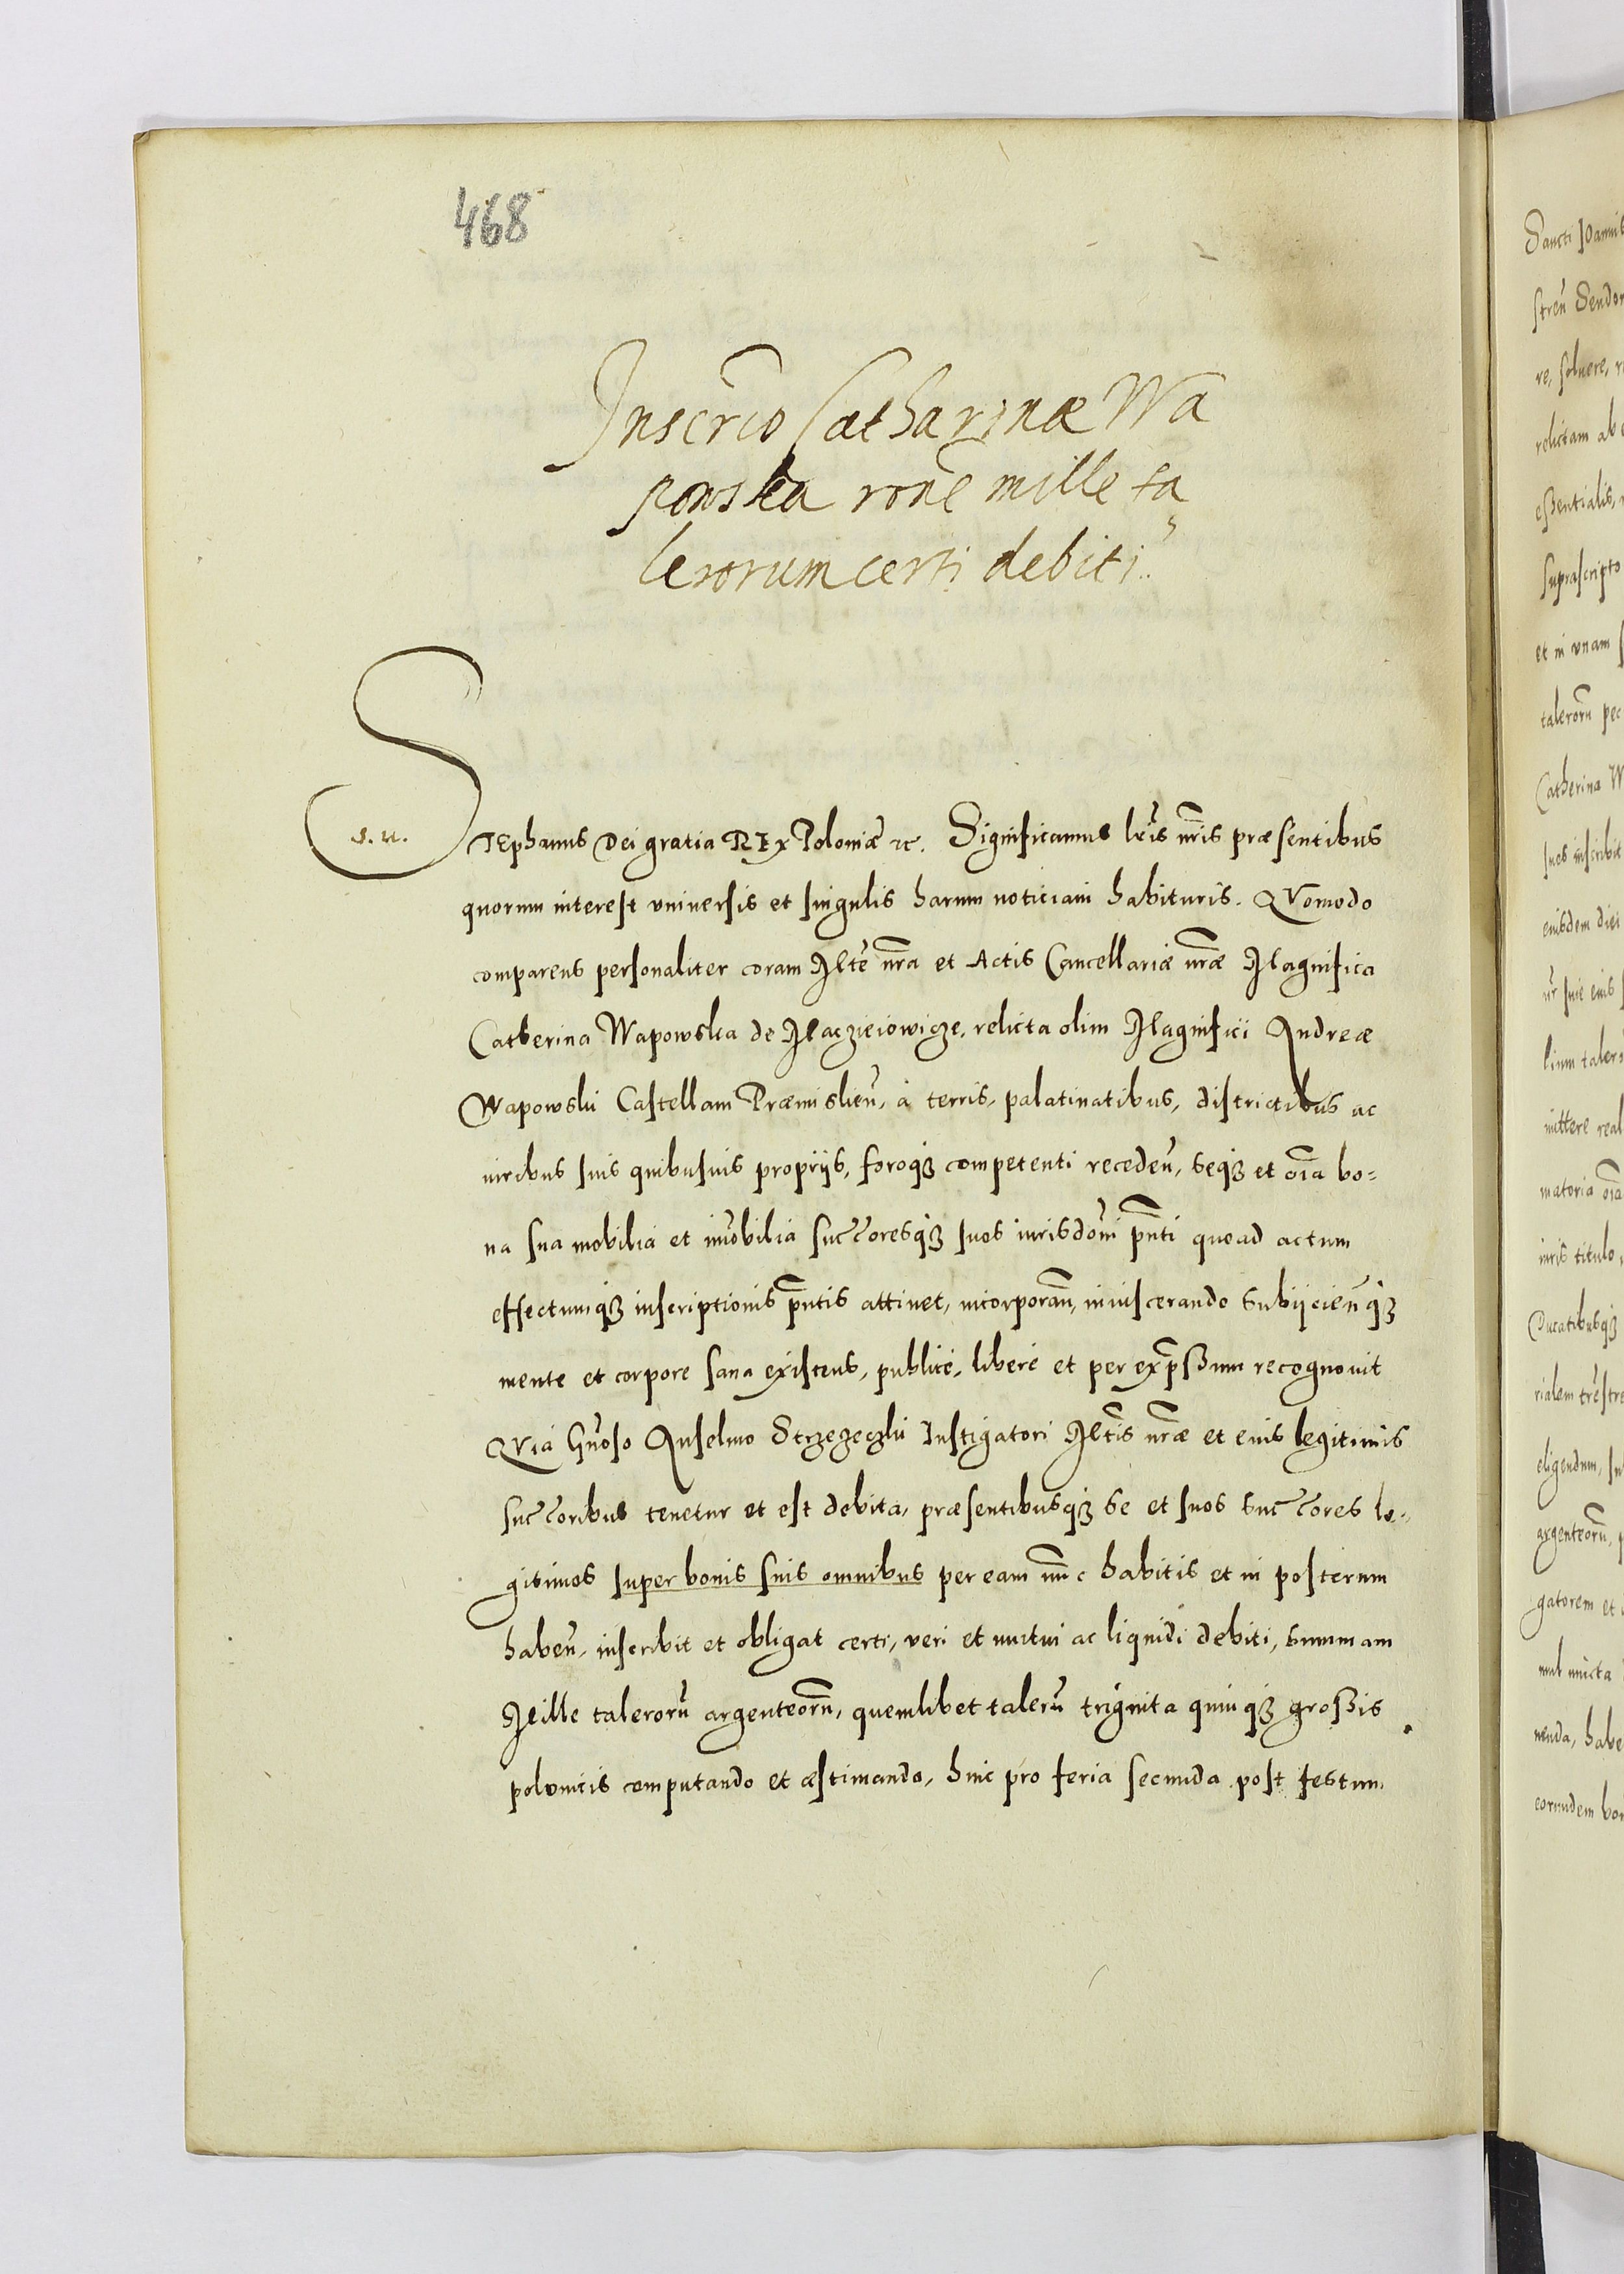 468
Inscr̃io Catharinæ Wa
powska rone mille ta
lerorum certi debiti.
s. n.
STEphanus Dei gratia REx Poloniæ etc. Significamus lr̃is nr̃is præsentibus
quorum interest vniuersis et singulis harum noticiam habituris. QVomodo
comparens personaliter coram Mtẽ nr̃a et Actis Cancellariæ nr̃æ Magnifica
Catherina Wapowska de Maczieiowicze, relicta olim Magnifici Andreæ
Wapowski Castellani Præmislieñ, à terris, palatinatibus, districtibus ac
iuribus suis quibusuis proprijs, foroq; competenti recedeñ, seq; et oĩa bo=
na sua mobilia et im̃obilia succ̃oresq; suos iurisdõni pñti quoad actum
effectumq; inscriptionis pñtis attinet, incorporañ, inuiscerando subijcieñq;
mente et corpore sana existens, publicè, liberè et per exp̃ssum recognouit
QVia Gñoso Anselmo Strzezeczki Instigatori Mtĩs nr̃æ et eius legitimis
succ̃oribus tenetur et est debita, præsentibusq; se et suos succ̃ores le=
gitimos super bonis suis omnibus per eam nunc habitis et in posterum
habeñ, inscribit et obligat certi, veri et mutui ac liquidi debiti, summam
Mille talerorũ argenteorũ, quemlibet talerũ triginta quinq; grossis
polonicis computando et æstimando, hinc pro feria secunda post festum
Sancti Joannis
streñ Sendom
re, soluere, r
relictam ab e
essentialis,
suprascripto
et in vnam s
talerorũ pec
Catherina W
suos inscribit
eiusdem diei
lium talero
mittere real
matoria oĩa
iuris titulo,
Ducatibusq;
rialem tr̃estre
eligendum, su
argenteorũ, p
gatorem et
nenda, habe
eorundem bon